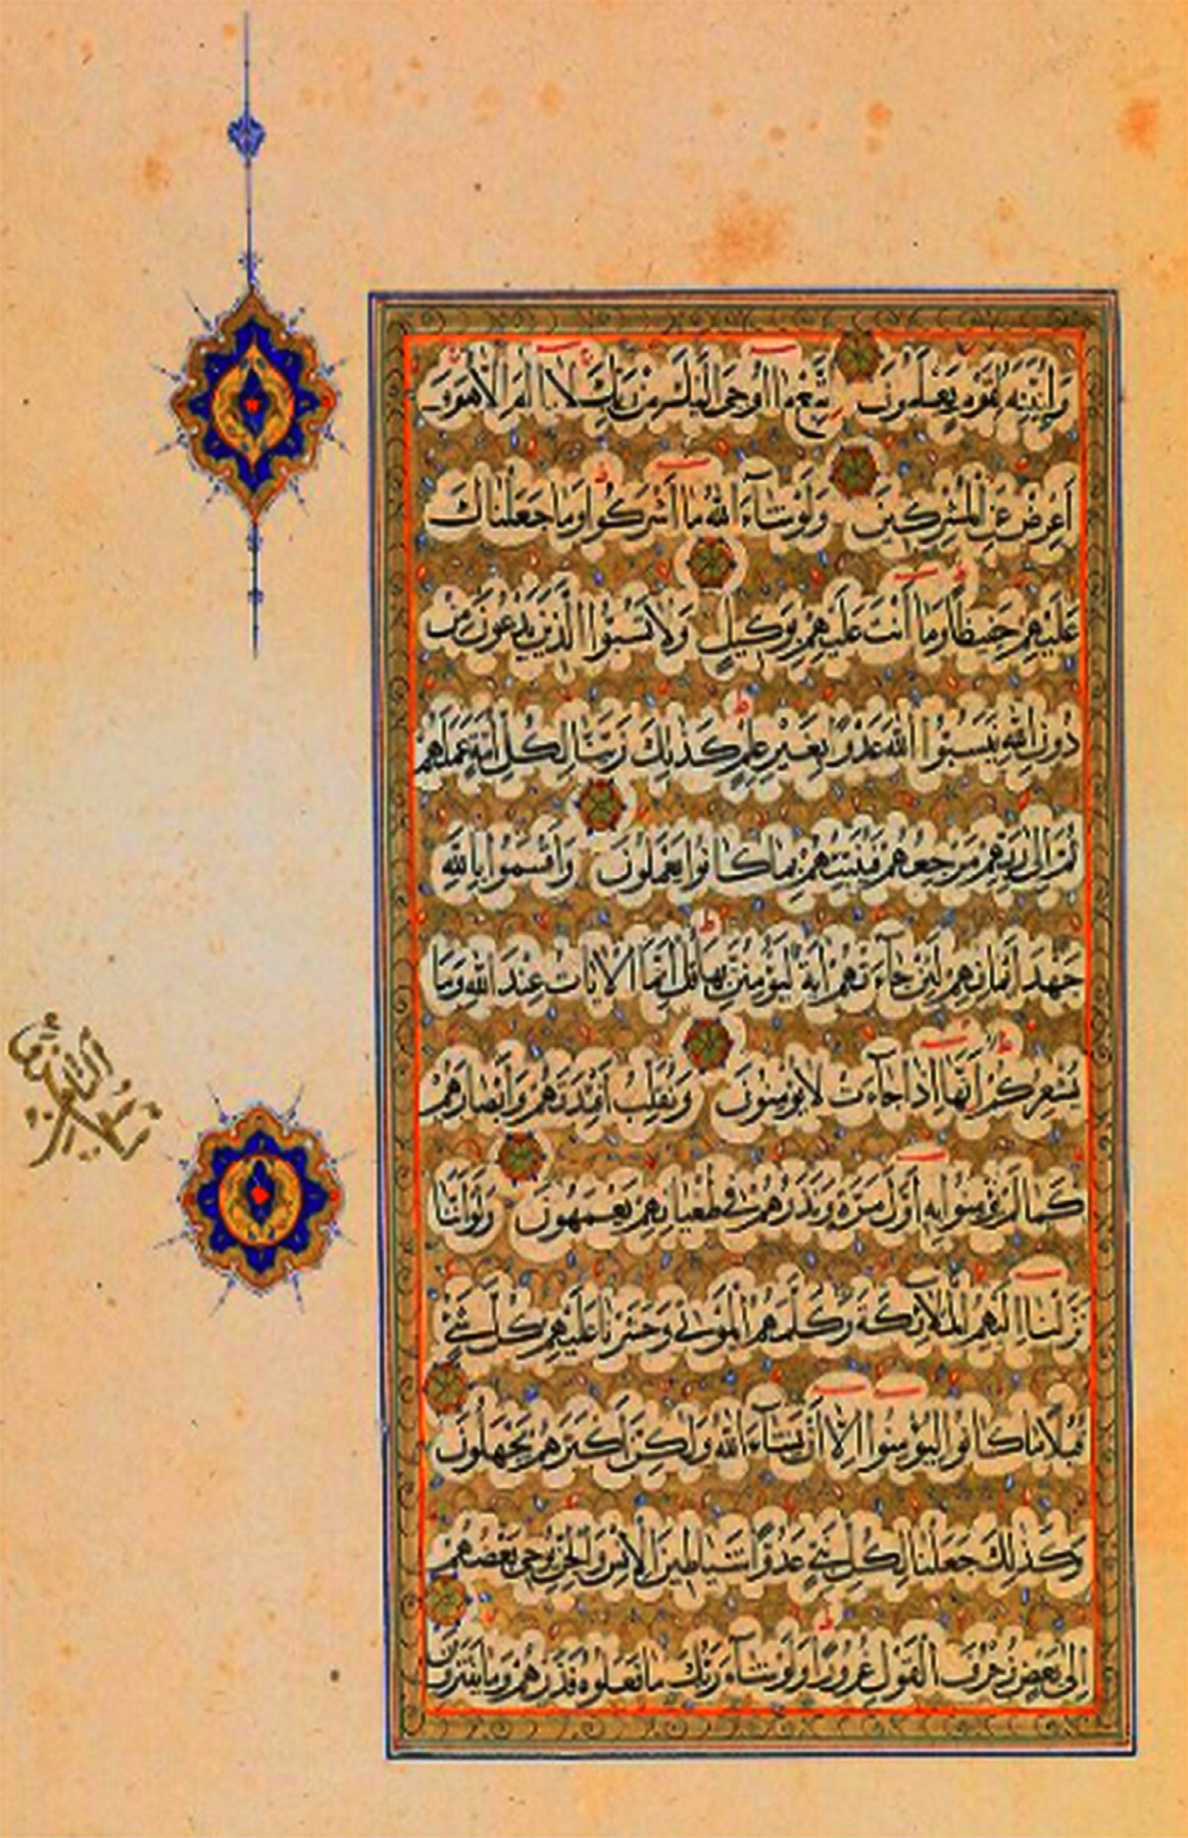 وَلِنُبَيِّنَهُ لِقَوْمٍ يَعْلَمُونَ اِتَّبِعْ مَا اُوحِىَ اِلَيْكَ مِنْ رَبِّكَ لَا اِلٰهَ اِلَّا هُوَ وَ
اَعْرِضْ عَنِ الْمُشْرِكِينَ وَلَوْ شَآءَ اللهُ مَا اَشْرَكُوا وَمَا جَعَلْنَاكَ
عَلَيْهِمْ حَفِيظًا وَمَا اَنْتَ عَلَيْهِمْ بِوَكِيلٍ وَلَا تَسُبُّوا الَّذِينَ يَدْعُونَ مِنْ
دُونِ اللهِ فَيَسُبُّوا اللهَ عَدْوًا بِغَيْرِ عِلْمٍ كَذٰلِكَ زَيَّنَّا لِكُلِّ اُمَّةٍ عَمَلَهُمْ
ثُمَّ اِلٰى رَبِّهِمْ مَرْجِعُهُمْ فَيُنَبِّئُهُمْ بِمَا كَانُوا يَعْمَلُونَ وَاَقْسَمُوا بِاللهِ
جَهْدَ اَيْمَانِهِمْ لَئِنْ جَآءَتْهُمْ اٰيَةٌ لَيُؤْمِنُنَّ بِهَا قُلْ اِنَّمَا الْاٰيَاتُ عِنْدَ اللهِ وَمَا
يُشْعِرُكُمْ اَنَّهَا اِذَا جَآءَتْ لَا يُؤْمِنُونَ وَنُقَلِّبُ اَفْئِدَتَهُمْ وَاَبْصَارَهُمْ
كَمَا لَمْ يُؤْمِنُوا بِهِ اَوَّلَ مَرَّةٍ وَنَذَرُهُمْ فِى طُغْيَانِهِمْ يَعْمَهُونَ وَلَوْ اَنَّنَا
نَزَّلْنَا اِلَيْهِمُ الْمَلَآئِكَةَ وَكَلَّمَهُمُ الْمَوْتٰى وَحَشَرْنَا عَلَيْهِمْ كُلَّ شَىْءٍ
قُبُلًا مَا كَانُوا لِيُؤْمِنُوا اِلَّا اَنْ يَشَآءَ اللهُ وَلٰكِنَّ اَكْثَرَهُمْ يَجْهَلُونَ
وَكَذٰلِكَ جَعَلْنَا لِكُلِّ نَبِىٍّ عَدُوًّا شَيَاطِينَ الْاِنْسِ وَالْجِنِّ يُوحِى بَعْضُهُمْ
اِلٰى بَعْضٍ زُخْرُفَ الْقَوْلِ غُرُورًا وَلَوْ شَآءَ رَبُّكَ مَا فَعَلُوهُ فَذَرْهُمْ وَمَا يَفْتَرُونَ